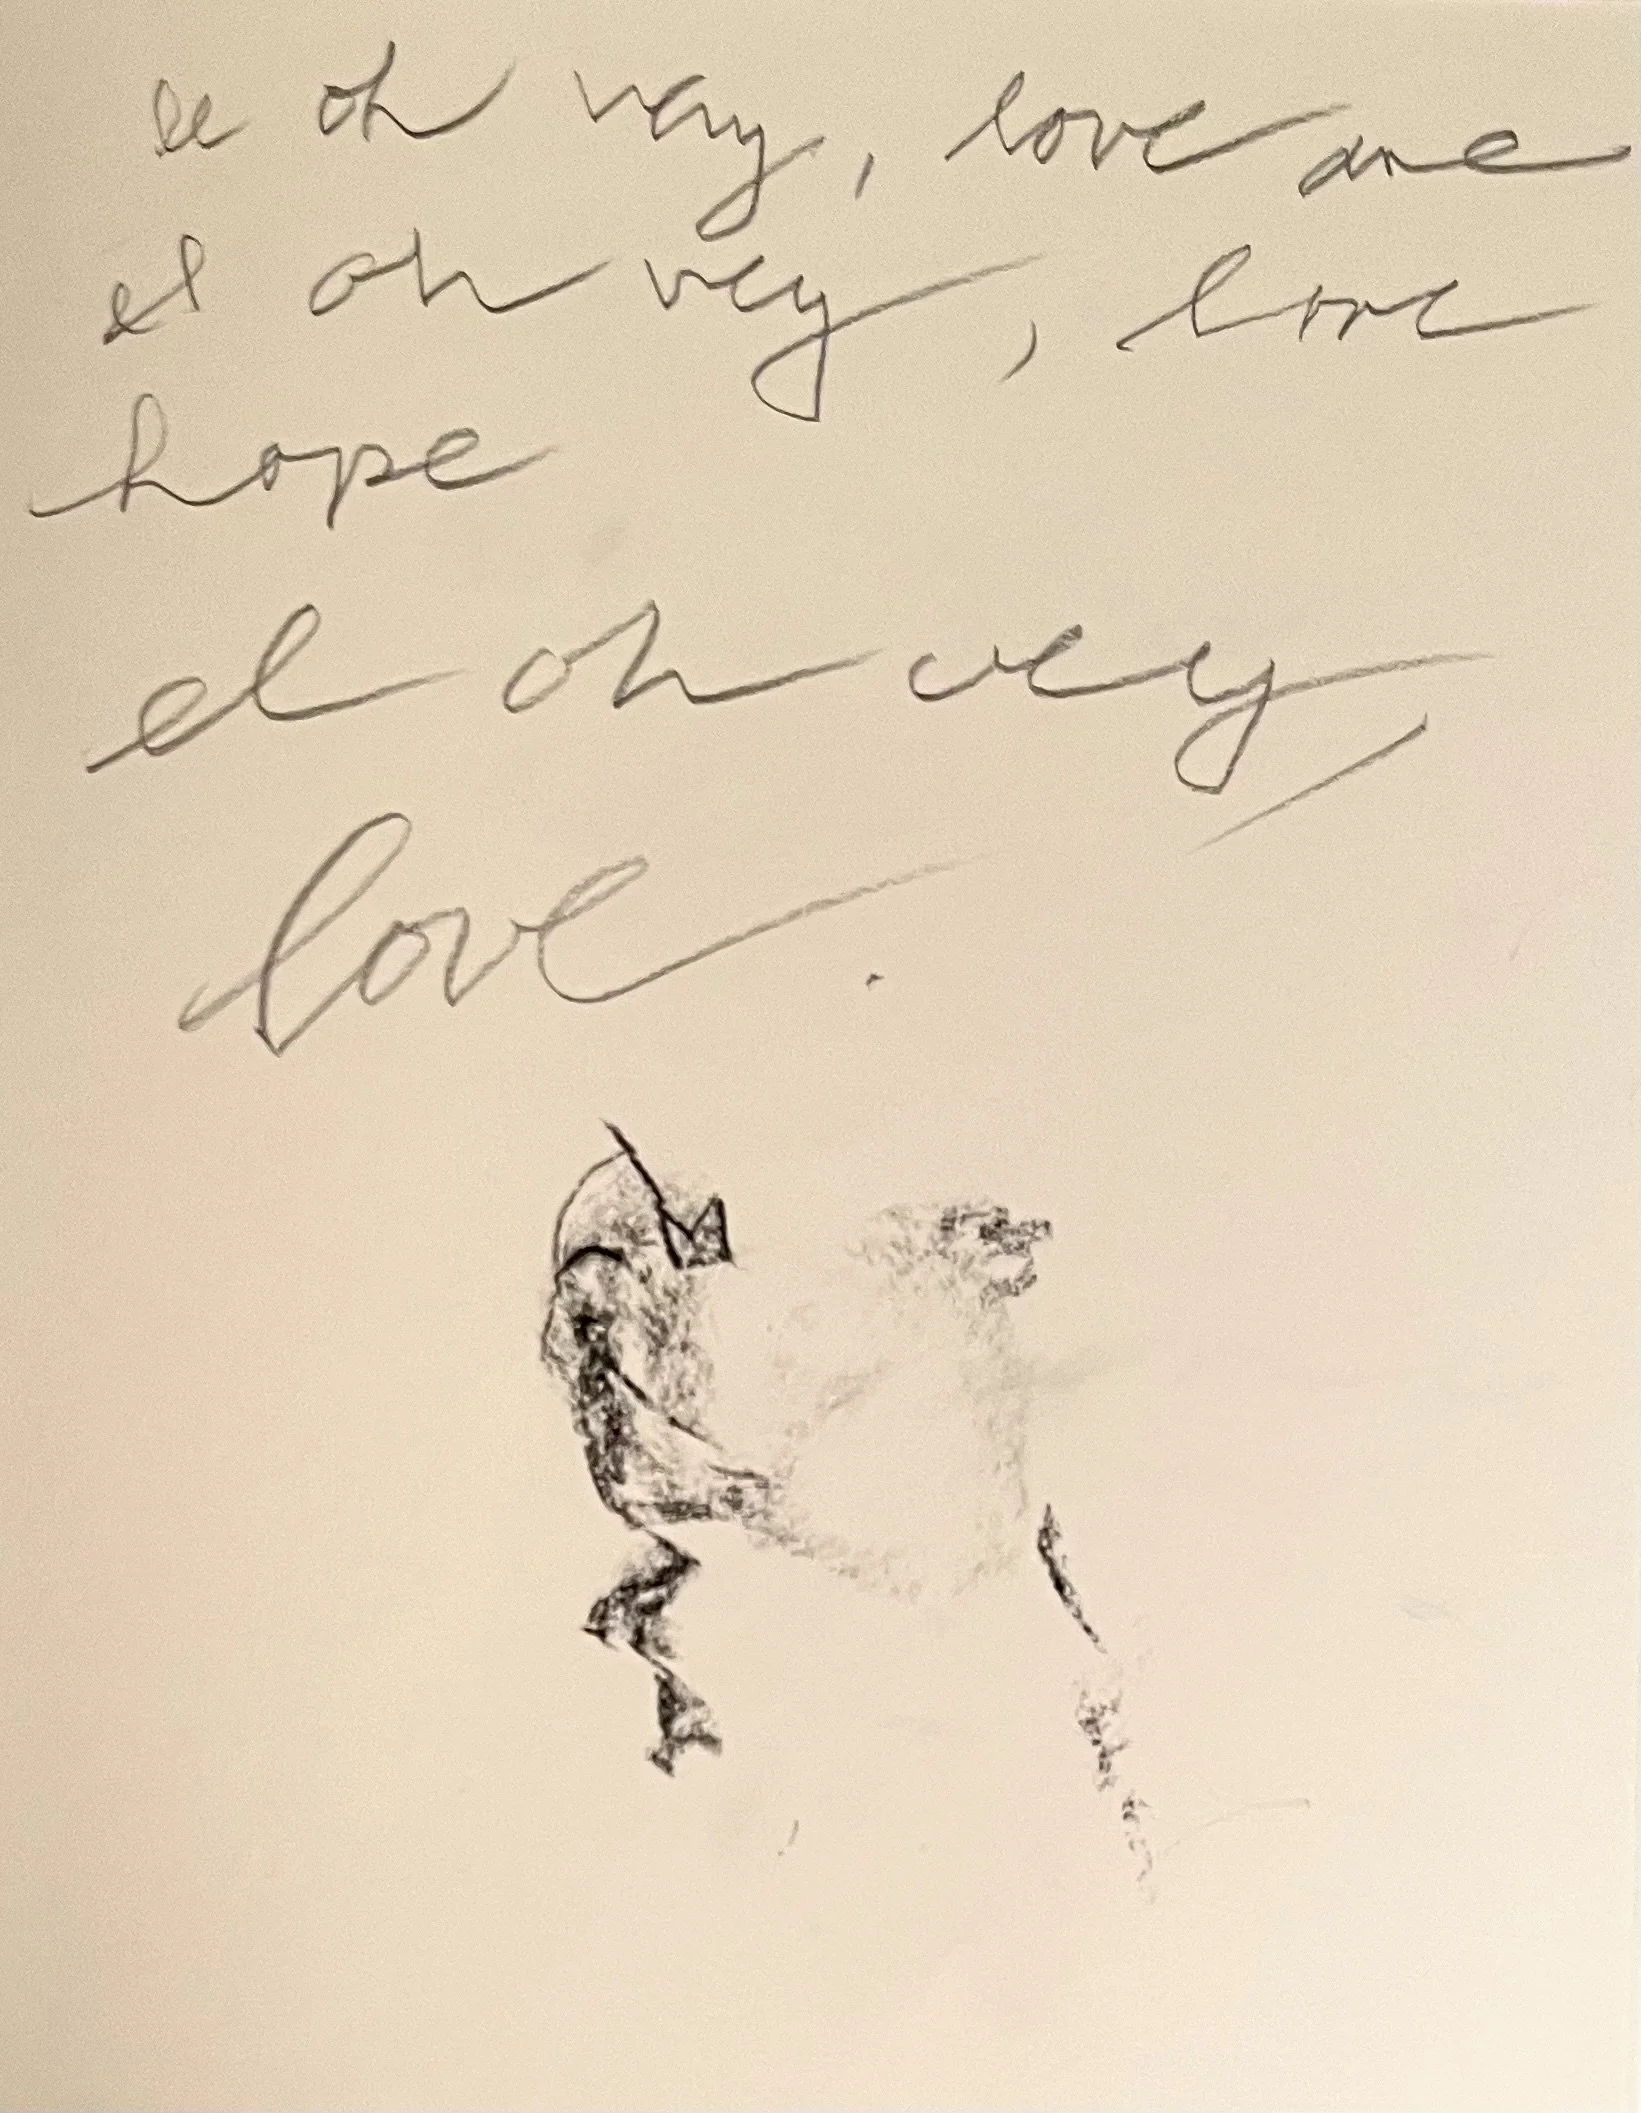 el oh vey, love me
el oh vey, love
hope
el oh vey,
love.